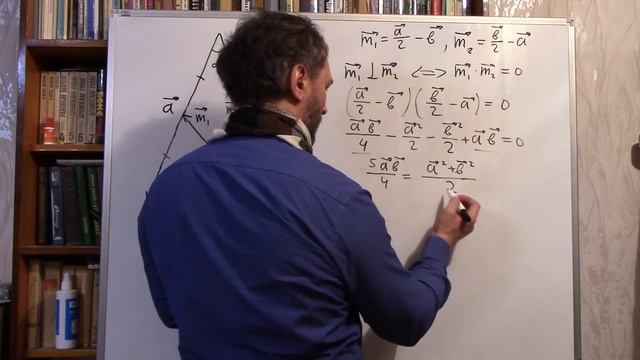 m⃗₁ = a⃗/2 − b⃗, m⃗₂ = b⃗/2 − a⃗
m⃗₁ ⊥ m⃗₂ ⟺ m⃗₁ · m⃗₂ = 0
(a⃗/2 − b⃗)(b⃗/2 − a⃗) = 0
a⃗b⃗/4 − a⃗²/2 − b⃗²/2 + a⃗b⃗ = 0
5a⃗b⃗/4 = a⃗² + b⃗²/2
a⃗ m⃗₁
4 5 6 7